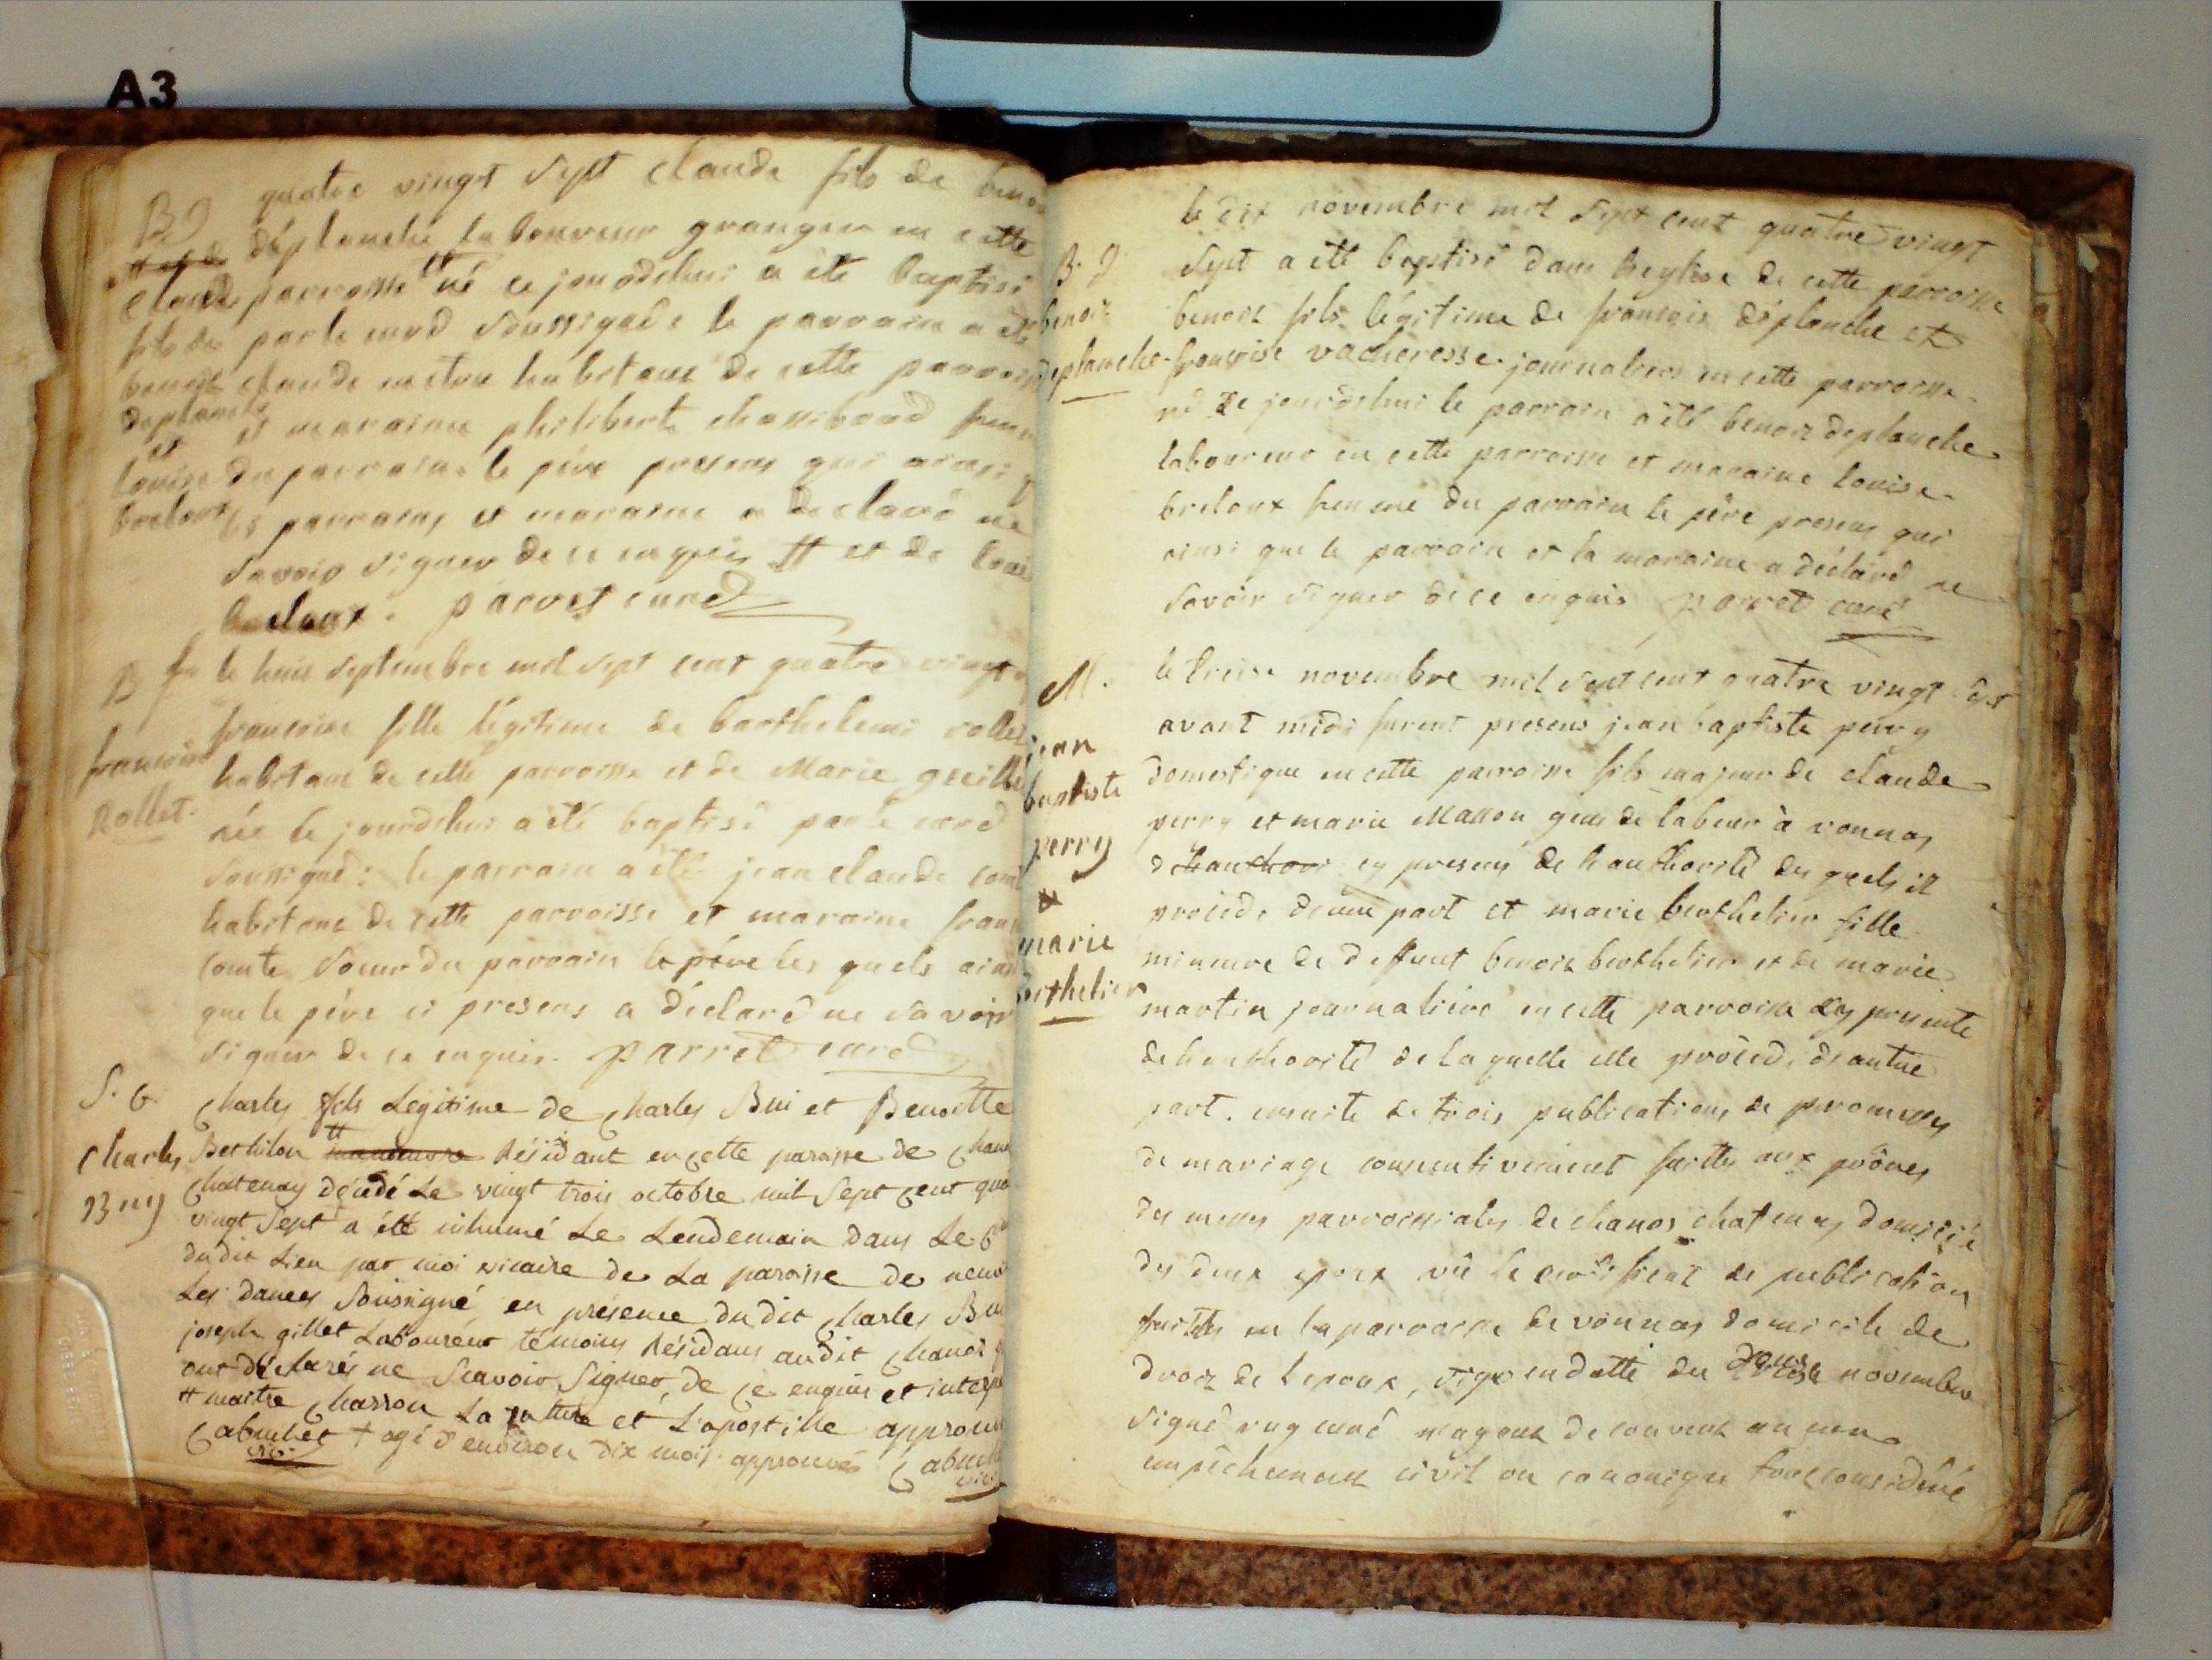 A3
B g quatre vingt sept claude fils de
déplanche laboureur granger en cette
claude parroisse né ce jourdehui a été baptisé
fils de par le curé soussignés le parrain a été
benoit claude habitant de cette parroisse
deplanche
et et maraine philiberte
louise du parrain le père presens qui ainsi
breloux les parrains et maraine a declaré ne
savoir signer de ce enquis tt et de
breloux. parret curé
B f le huit septembre mil sept cent quatre vingt
francoise fille légitime de barthelemi rollet
francoise habitant de cette parroisse et de Marie
Rollet née le jourdehui a été baptisé par le curé
soussigné: le parrain a été jean claude
habitant de cette parroisse et maraine
comte soeur du parrain le père les quels ainsi
que le père ci presens a déclaré ne savoir
signer de ce enquis. parret curé
S. G Charles fils Legitime de Charles Bui et Benoitte
Charles Berthilon tt Résidant en cette paroisse de
Bny Chatenay décédé Le vingt trois octobre mil Sept cent
vingt Sept a été inhumé Le Lendemain dans Le
dudit Lieu par moi vicaire de La paroisse de
Les dames Soussigné en présence dudit Charles
joseph gillet Laboureur témoins Résidans audit
ont déclarés ne Scavoir Signer, de ce enquis et
tt maitre Masson La rature et L'apostille
Cabuchet † agé d'environ dix mois approuvés
vic:
le dix novembre mil sept cent quatre vingt
B. g sept a été baptisé dans l'eglise de cette parroisse
benoit benoit fils légitime de françois déplanche et
deplanche françoise vacheresse journaliers en cette parroisse
né ce jourdehui le parrain a été benoit deplanche
laboureur en cette parroisse et maraine louise
breloux femme du parrain le père presens qui
ainsi que le parrain et la maraine a déclaré ne
savoir signer de ce enquis parret curé
M. le treise novembre mil sept cent quatre vingt sept
avant midi furent presens jean baptiste perry
jean domestique en cette parroisse fils majeur de claude
baptiste perry et marie Masson gens de labeur à vonnas
perry cy presens de l'authorité des quels il
& procede d'une part et marie berthelier fille
marie mineure de deffunt benoit berthelier et de marie
berthelier martin journalière en cette parroisse cy presente
de l'authorité de laquelle elle procede d'autre
part. ensuite de trois publications de promesses
de mariage consecutivement faittes aux prônes
des messes parroissiales de chanos chatenay domicile
des deux epoux vû le certificat de publication
faittes en la parroisse de vonnas domicile de
droit de l'epoux, en datte du douse novembre
signé curé n'ayant decouvert aucun
empêchement civil ou canonique tout considéré